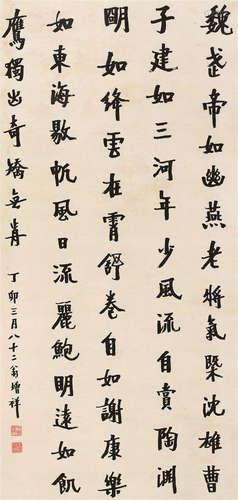 魏武帝如幽燕老將氣槩沈雄曹
子建如三河年少風流自賞陶淵
明如絳雲在霄舒卷自如謝康樂
如東海敭帆風日流麗鮑明遠如飢
鷹獨出奇矯無前
丁卯三月八十二翁增祥